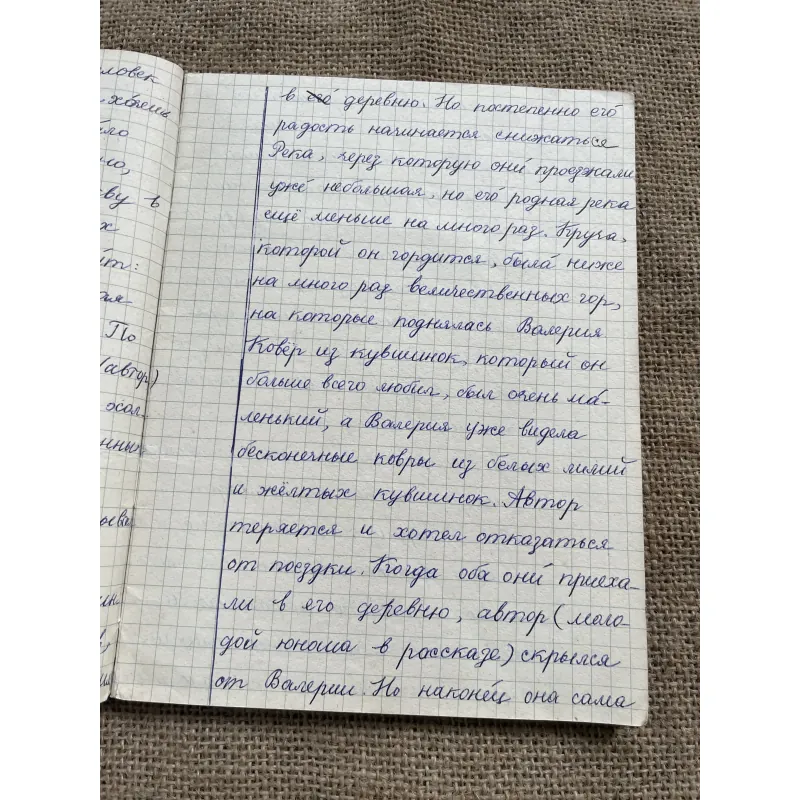 ловек
хочешь
ло
ло,
ву в
х
ит:
ая
По
(автор)
хол-
нных
ин-
в его деревню. Но постепенно его
радость начинается снижаться
Река, через которую они проезжали
уже небольшая, но его родная река
ещё меньше на много раз. Круча,
которой он гордится, была ниже
на много раз величественных гор,
на которые поднялась Валерия
Ковёр из кувшинок, который он
больше всего любил, был очень ма-
ленький, а Валерия уже видела
бесконечные ковры из белых лилий
и жёлтых кувшинок. Автор
теряется и хотел отказаться
от поездки. Когда оба они приеха-
ли в его деревню, автор (моло-
дой юноша в рассказе) скрылся
от Валерии. Но наконец она сама